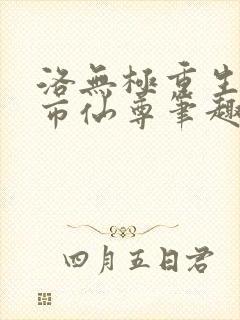 洛無極重生
市仙尊筆趣
四月五日君